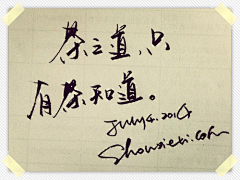 茶之道,只
有茶知道。
July4.2014